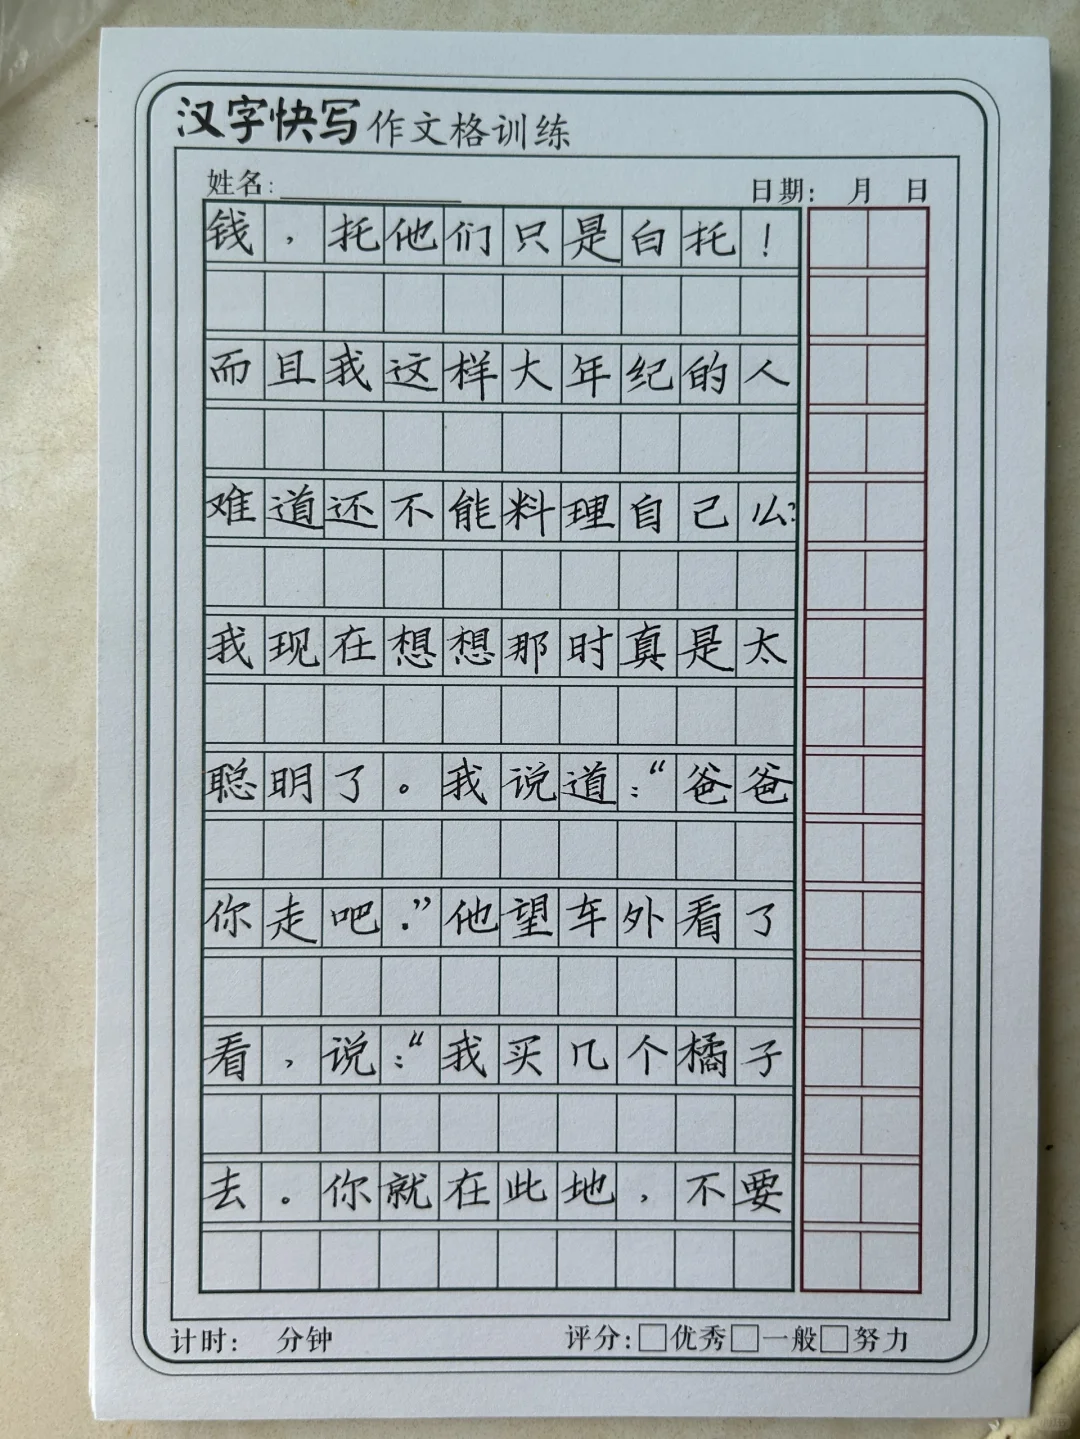 汉字快写作文格训练
姓名: 日期: 月 日
钱，托他们只是白托！
而且我这样大年纪的人
难道还不能料理自己么?
我现在想想那时真是太
聪明了。我说道：“爸爸
你走吧.”他望车外看了
看，说：“我买几个橘子
去。你就在此地，不要
计时: 分钟 评分:□优秀□一般□努力